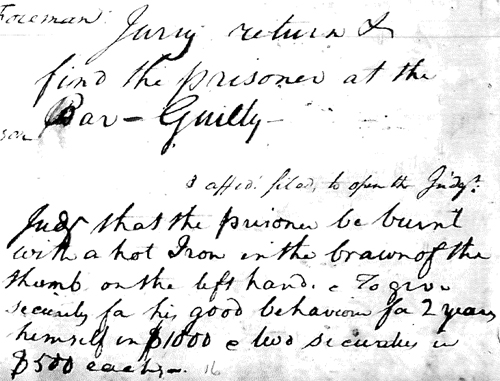 Foreman
Jury return &
find the prisoner at the
Bar - Guilty -
3 affid. filed, to open the Judgt.
Judgt that the prisoner be burnt
with a hot Iron in the brawn of the
thumb on the left hand. & To give
security for his good behaviour for 2 years
himself in $1000 & two securities in
$500 each, -
16